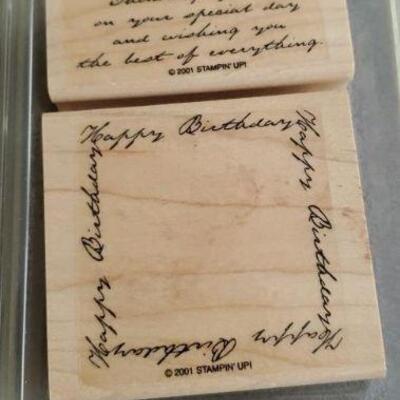 on your special day
and wishing you
the best of everything.
© 2001 STAMPIN' UP!
Happy Birthday
Happy Birthday
Happy Birthday
Happy Birthday
© 2001 STAMPIN' UP!